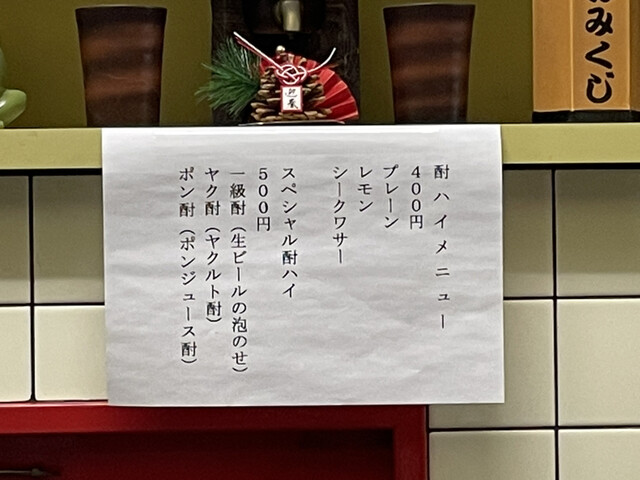 酎ハイメニュー
400円
プレーン
レモン
シークワサー
スペシャル酎ハイ
500円
一級酎（生ビールの泡のせ）
ヤク酎（ヤクルト酎）
ポン酎（ポンジュース酎）
迎春
おみくじ